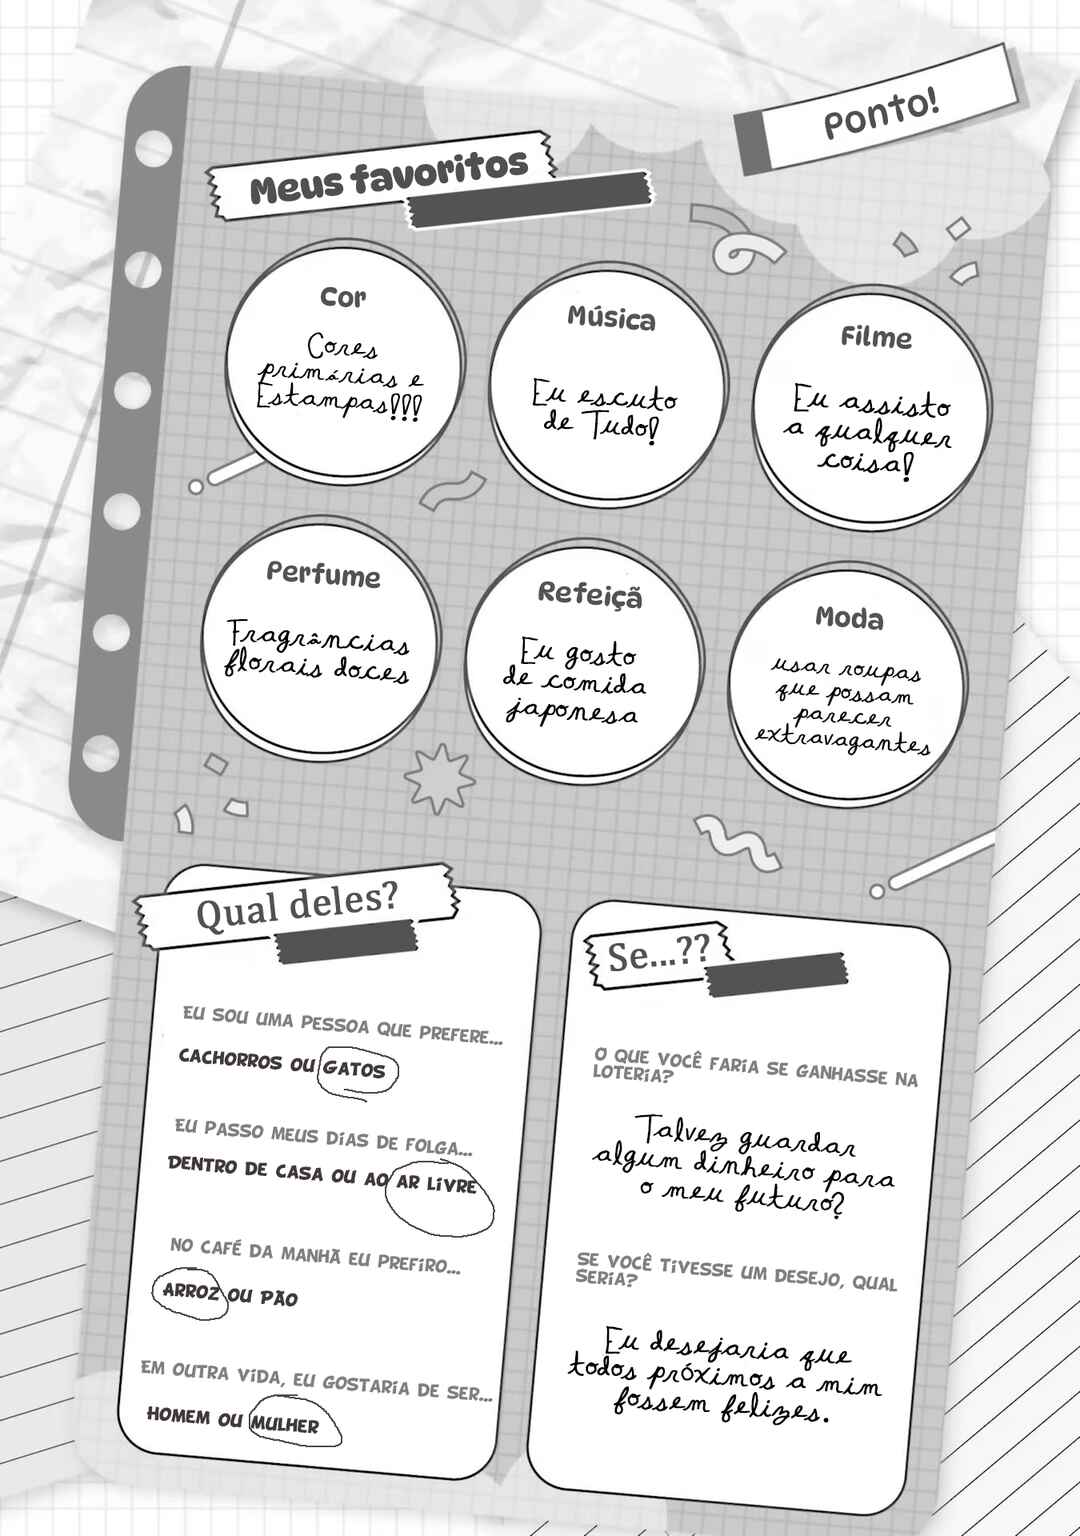 Ponto!
Meus favoritos
Cor
Cores
primárias e
Estampas!!!
Música
Eu escuto
de Tudo!
Filme
Eu assisto
a qualquer
coisa!
Perfume
Fragrâncias
florais doces
Refeiçã
Eu gosto
de comida
japonesa
Moda
usar roupas
que possam
parecer
extravagantes
Qual deles?
EU SOU UMA PESSOA QUE PREFERE...
CACHORROS OU GATOS
EU PASSO MEUS DIAS DE FOLGA...
DENTRO DE CASA OU AO AR LIVRE
NO CAFÉ DA MANHÃ EU PREFIRO...
ARROZ OU PÃO
EM OUTRA VIDA, EU GOSTARIA DE SER...
HOMEM OU MULHER
Se...??
O QUE VOCÊ FARIA SE GANHASSE NA
LOTERIA?
Talvez guardar
algum dinheiro para
o meu futuro?
SE VOCÊ TIVESSE UM DESEJO, QUAL
SERIA?
Eu desejaria que
todos próximos a mim
fossem felizes.